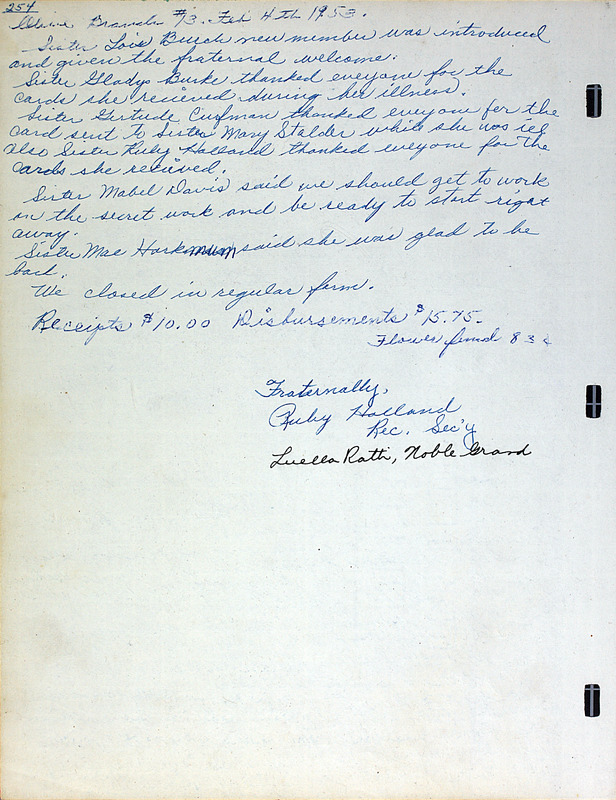 254
Olive Branch #13. Feb 4th 1953.
Sister Lois Burch new member was introduced
and given the fraternal welcome.
Sister Gladys Burke thanked everyone for the
cards she recieved during her illness.
Sister Gertrude Curfman thanked everyone for the
card sent to Sister Mary Stalder while she was ill
also Sister Ruby Holland thanked everyone for the
cards she recieved.
Sister Mabel Davis said we should get to work
on the secret work and be ready to start right
away.
Sister Mae said she was glad to be
back.
We closed in regular form.
Receipts $10.00 Disbursements $15.75.
Flower fund 83¢
Fraternally,
Ruby Holland
Rec. Sec'y
Luella Ratti, Noble Grand